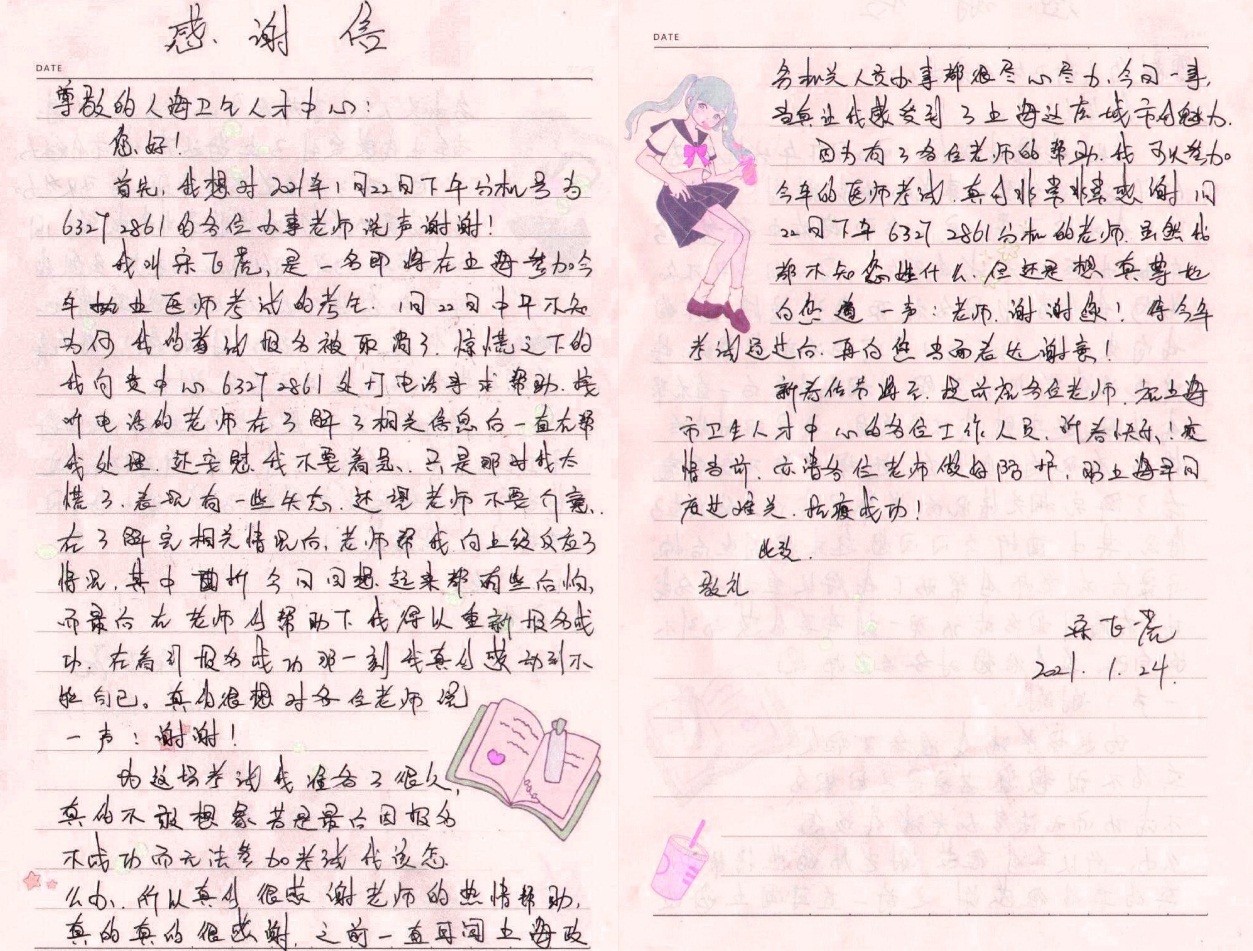 感谢信
DATE
尊敬的上海卫生人才中心：
您好！
首先，我想对2021年1月22日下午分机号为
6327 2861的各位办事老师说声谢谢！
我叫宋飞虎，是一名即将在上海参加今
年执业医师考试的考生. 1月22日中午不知
为何我的考试报名被取消了. 惊慌之下的
我向贵中心6327 2861处打电话寻求帮助. 接
听电话的老师在了解了相关信息后一直在帮
我处理. 还安慰我不要着急. 只是那时我太
慌了. 表现有一些失态. 还望老师不要介意.
在了解完相关情况后, 老师帮我向上级反应了
情况, 其中曲折今日回想起来都有些后怕,
而最后在老师的帮助下我得以重新报名成
功. 在看到报名成功那一刻我真的感动到不
能自已。真的很想对各位老师说
一声：谢谢！
为这场考试我准备了很久,
真的不敢想象若是最后因报名
不成功而无法参加考试我该怎
么办. 所以真的很感谢老师的热情帮助,
真的真的很感谢, 之前一直耳闻上海政
DATE
务机关人员办事都很尽心尽力, 今日一事,
当真让我感受到了上海这座城市的魅力.
因为有了各位老师的帮助. 我可以参加
今年的医师考试. 真的非常非常感谢1月
22日下午6327 2861分机的老师. 虽然我
都不知您姓什么. 但还是想真挚地
向您道一声：老师. 谢谢您！待今年
考试通过后. 再向您当面表达谢意！
新春佳节将至. 提前祝各位老师. 祝上海
市卫生人才中心的各位工作人员. 新春快乐！疫
情当前. 亦请各位老师做好防护. 盼上海早日
度过难关. 抗疫成功！
此致.
敬礼
宋飞虎
2021. 1. 24.